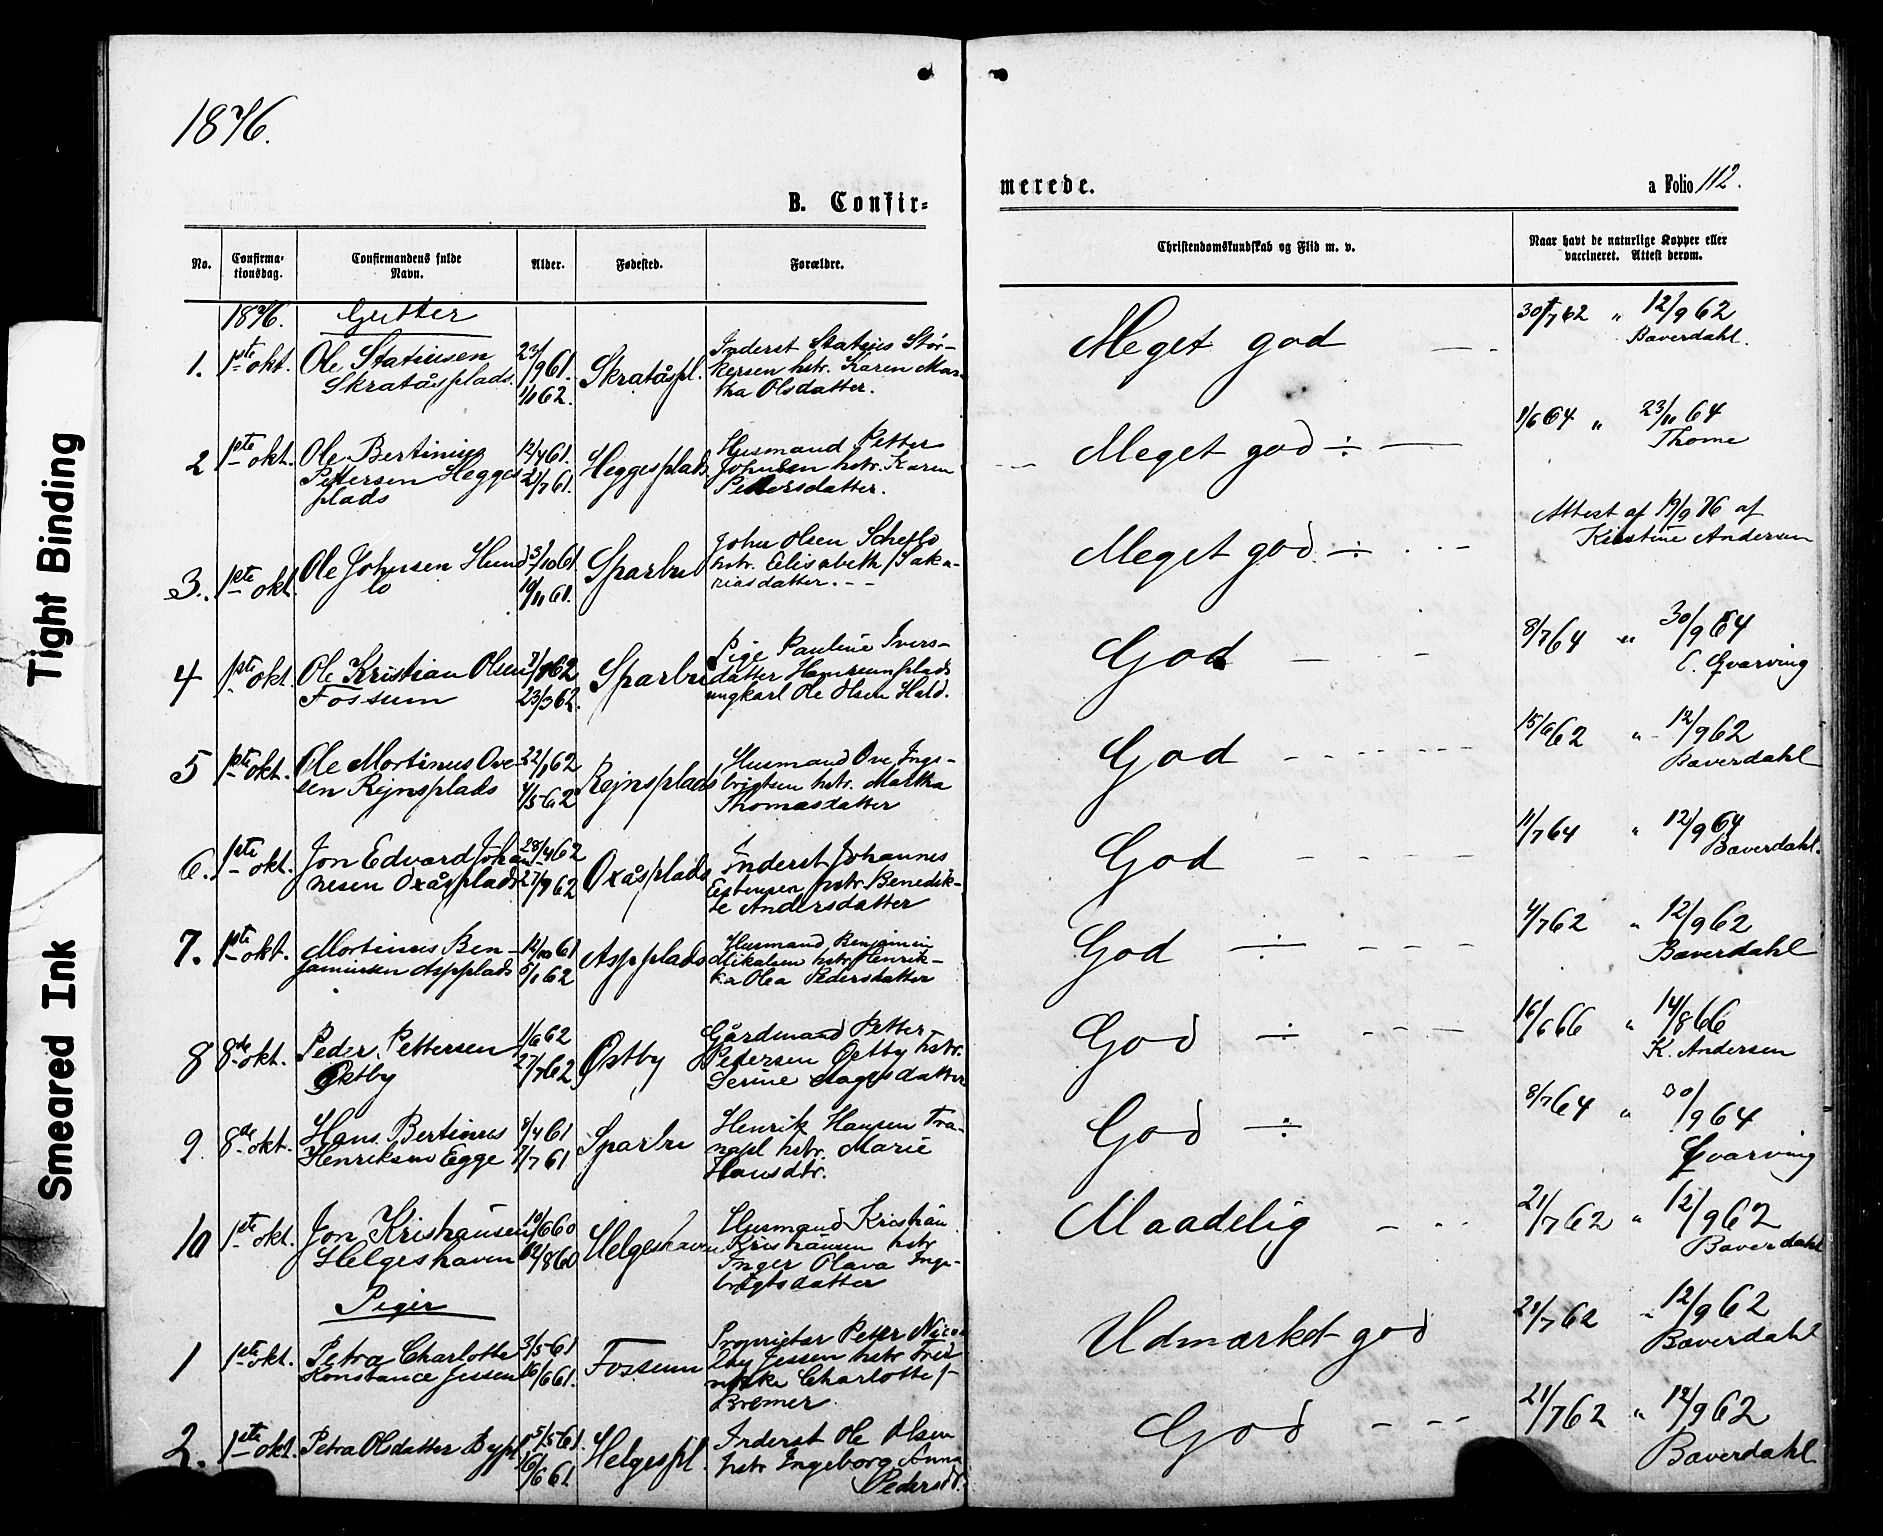 1876.
B. Confir=
merede.
a Folio 112.
No.
Confirma-
tionsdag.
Confirmandens fulde
Navn.
Alder.
Fødested.
Forældre.
Christendomskundskab og Flid m. v.
Naar havt de naturlige Kopper eller
vaccineret. Attest derom.
1876. Gutter
1. 1ste okt. Ole Statiusen
Skratåsplads.
23/9 61.
1/1 62.
Skratåspl.
Inderst Statius Stør-
kersen hstr. Karen Mar-
tha Olsdatter.
Meget god
30/7 62 " 12/9 62
Baverdahl.
2 1ste okt. Ole Bertinius
Pettersen Hegges
plads
12/4 61.
21/7 61.
Heggesplads
Husmand Petter
Johnsen hstr. Karen
Pettersdatter.
Meget god ÷
1/6 64 " 23/11 64
Thome
3. 1ste okt. Ole Johnsen Hund
lo
3/10 61
10/11 61.
Sparbu
John Olsen Scheflo
hstr. Elisabeth Saka-
riasdatter.
Meget god ÷
Attest af 19/9 76 af
Kirstine Andersen
4 1ste okt. Ole Kristian Olsen
Fossum
23/3 62.
Sparbu
Pige Pauline Ivers-
datter Hamremsplads
ungkarl Ole Olsen Hald.
God
8/7 64 " 30/9 64
C. Qvarving
5 1ste okt. Ole Mortinus Ove-
sen Rejnsplads
22/1 62
4/5 62
Rejnsplads
Husmand Ove Inge-
brigtsen hstr. Martha
Thomasdatter
God
15/6 62 " 12/9 62
Baverdahl
6. 1ste okt. Jon Edvard Johan
nesen Oxåsplads
28/4 62
27/7 62
Oxåsplads
Inderst Johannes
Estensen hstr. Benedik-
te Andersdatter
God
11/7 64 " 12/9 64
Baverdahl.
7. 1ste okt. Mortinus Ben-
jaminsen Aspplads
12/10 61
5/1 62
Aspplads
Husmand Benjamin
Mikalsen hstr Henrik-
ka Olea Pedersdatter
God ÷
4/7 62 " 12/9 62
Baverdahl
8 8de okt. Peder Pettersen
Østby
1/6 62
27/7 62
Østby
Gårdmand Petter
Pedersen Østby hstr.
Serine Aagesdatter
God ÷
16/6 66 " 14/8 66
K. Andersen
9. 8de okt. Hans Bertinus
Henriksen Egge
8/4 61
7/7 61
Sparbu
Henrik Hansen Tra-
napl hstr. Marie
Hansdtr.
God ÷
8/7 64 " 30/9 64
Qvarving
10 1ste okt. Jon Kristiansen
Helgeshaven
10/6 60
12/8 60
Helgeshaven
Husmand Kristian
Kristiansen hstr
Inger Olava Inge-
brigtsdatter
Maadelig
21/7 62 " 12/9 62
Baverdahl
Piger
1 1ste okt. Petra Charlotte
Konstance Jessen
3/5 61
16/6 61.
Fossum
Proprietær Petter Nico
lay Jessen hstr Fred
rikke Charlotte f.
Bremer
Udmærket god
21/7 62 " 12/9 62
Baverdahl
2. 1ste okt. Petra Olsdatter Bypl
5/5 61.
16/6 61
Helgespl.
Inderst Ole Olsen
hstr Ingeborg Anna
Pedersdt.
God
21/7 62 " 12/9 62
Baverdahl
Tight Binding
Smeared Ink